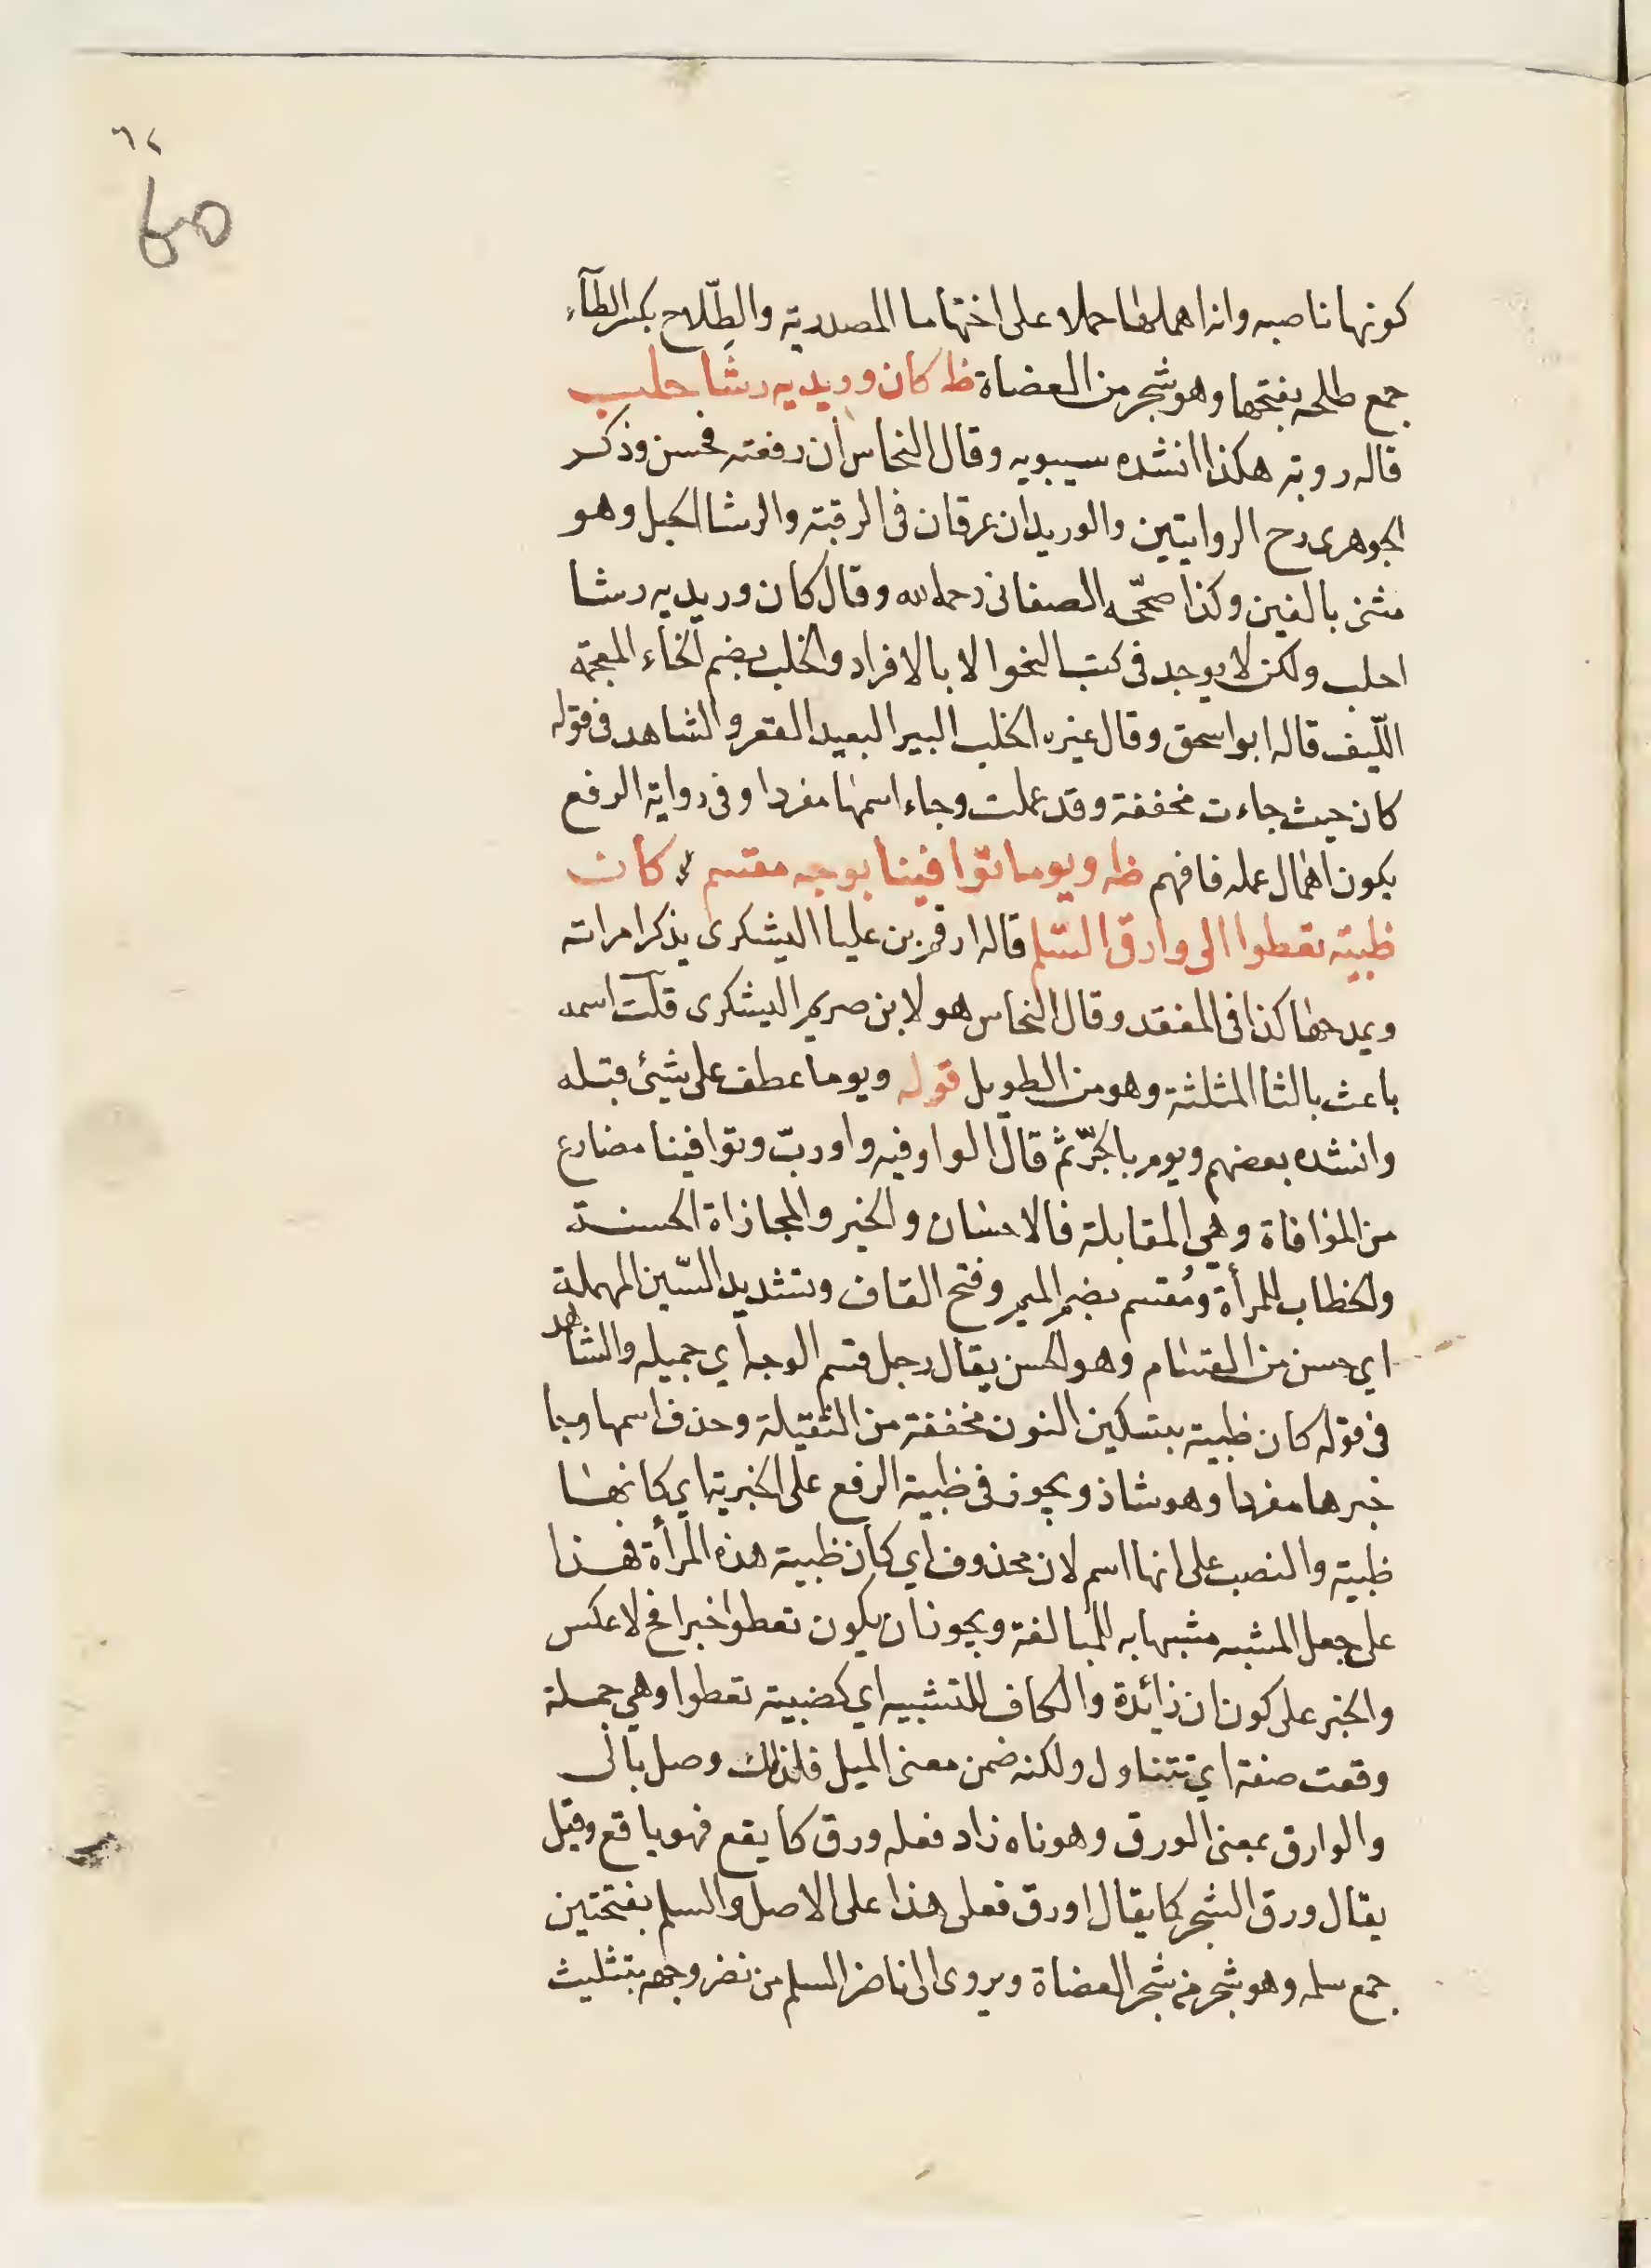 ٦٢
60
كونها ناصبه وانه اهملها حملا على اختها ما المصدرية والطِّلاح بكسر الطآء
جمع طلحه بفتحها وهو شجر من العضاة ظ كان وريديه رشا خلب
قاله روبة هكذا انشده سيبويه وقال النحاس ان رفعته فحسن وذكر
الجوهرى رح الروايتين والوريدان عرقان فى الرقبة والرشا الحبل وهو
مثنى بالفين وكذا صحّحه الصغانى رحمه الله وقال كان وريديه رشا
احلب ولكن لا يوجد فى كتب النحو الا بالافراد والخلب بضم الخاء المعجمة
اللّيف قاله ابو اسحق وقال غيره الخلب البير البعيد القعر والشاهد فى قوله
كان حيث جاءت مخففة وقد عملت وجاء اسمها مفردا وفى رواية الرفع
يكون اهمال عمله فافهم ظه ويوما توافينا بوجه مقسم كان
ظبية تعطوا الى وارق السّلم قاله ارقم بن عليا اليشكرى يذكر امراته
ويمدحها كذا فى المفقد وقال النحاس هو لابن صريم اليشكرى قلت اسمه
باعث بالثا المثلثة وهو من الطويل قوله ويوما عطف على شيئ قبله
وانشده بعضهم ويوم بالجرّ ثم قال الواو فيه واو ربّ وتوافينا مضارع
من الموافاة وهي المقابلة فالاحسان والخير والمجازاة الحسنة
والخطاب للمرأة ومُقسم بضم الميم وفتح القاف وتشديد السّين المهملة
اي حسن من القسام وهو الحسن يقال رجل قسم الوجه أي جميله والشاهد
فى قوله كان ظبية بتسكين النون مخففة من الثقيلة وحذف اسمها وجا
خبرها مفردا وهو شاذ ويجوز فى ظبية الرفع على الخبرية اي كانها
ظبية والنصب على انها اسم لان محذوف اي كان ظبية هذه المرأة فهذا
على جعل المشبه مشبها به للمبالغة ويجوز ان يكون تعطوا خبرا فح لا عكس
والجر على كون ان زائدة والكاف للتشبيه اي كضبية تعطوا وهي جملة
وقعت صفة اي تتناول ولكنه ضمن معنى الميل فلذلك وصل بالى
والوارق بمعنى المورق وهو ناه زاد فعله ورق كا يقع فهو ياقع وقيل
يقال ورق الشجر كا يقال اورق فعلى هذا على الاصل والسلم بفتحتين
جمع سلمه وهو شجر من شجر العضاة ويروى الى ناضر السلم من نضر وجهه بتثليث